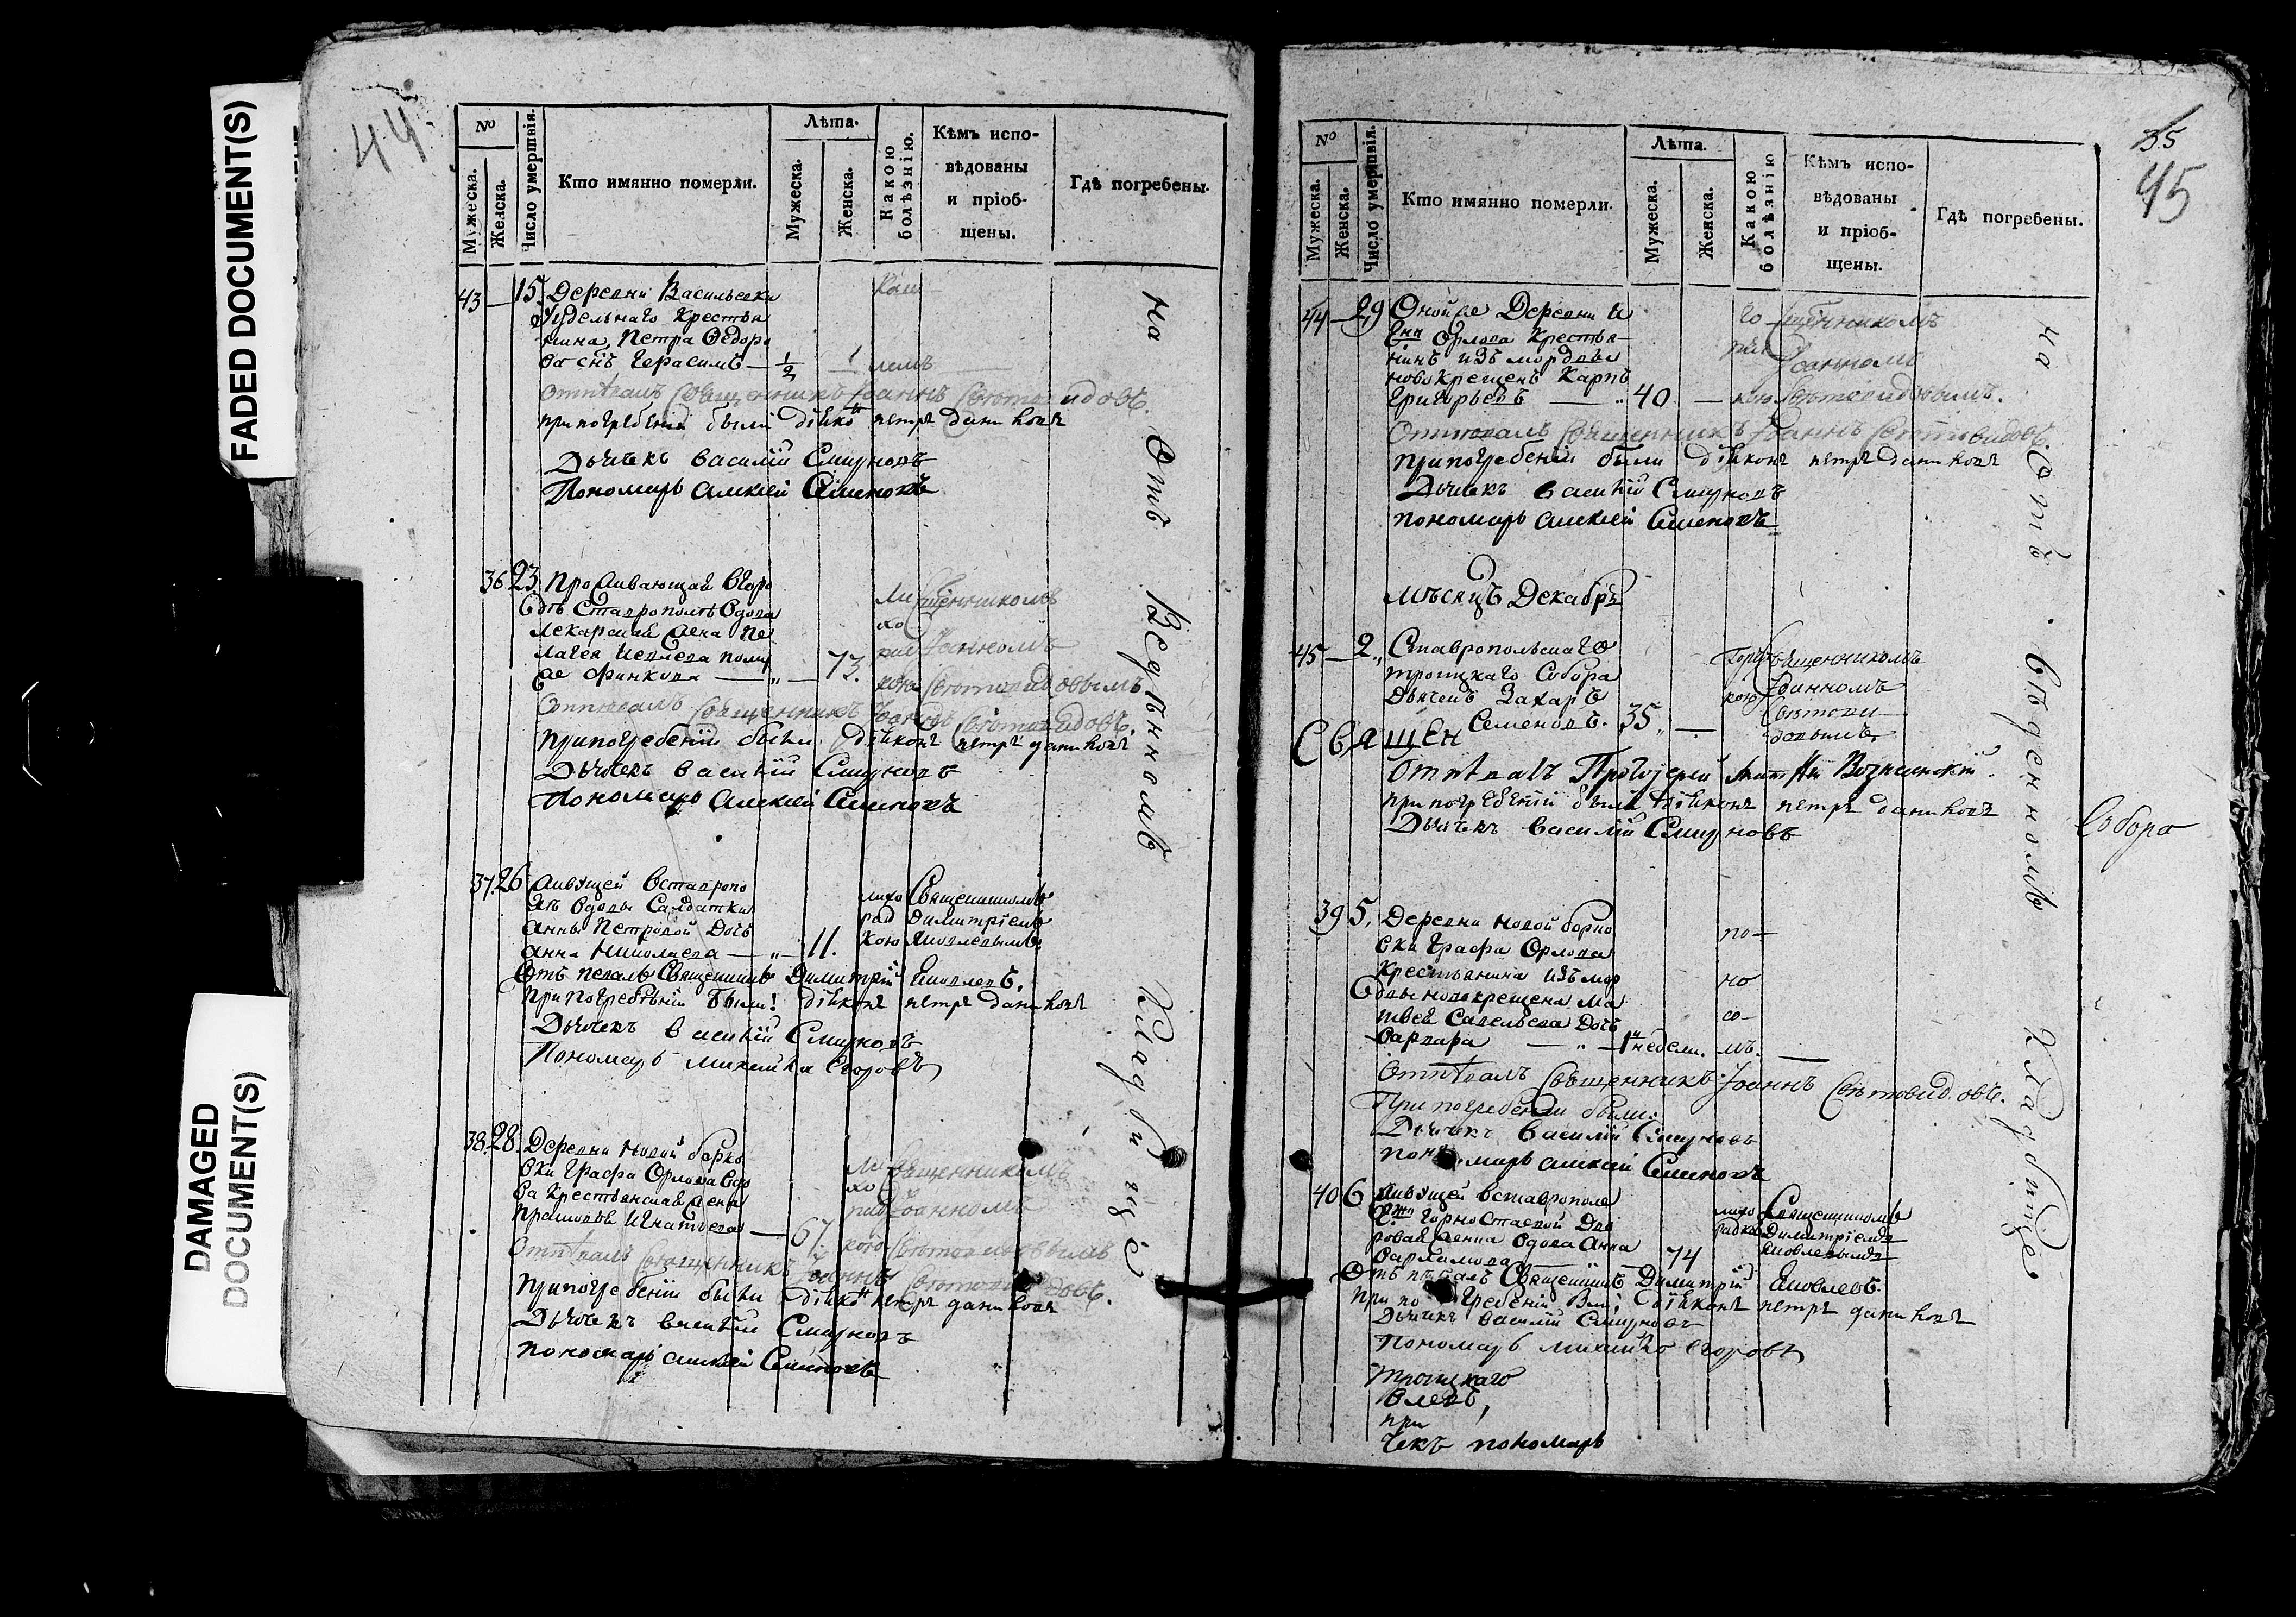 FADED DOCUMENT(S)
DAMAGED
DOCUMENT(S)
44.
№
Мужеска.
Женска.
Число умертвія.
Кто имянно померли.
Лѣта.
Мужеска.
Женска.
Какою
болѣзнію.
Кѣмъ испо-
вѣдованы
и пріоб-
щены.
Гдѣ погребены.
43 — 15. Деревни Васильевки
Удельнаго Крестья
нина, Петра Ѳедоро
ва снъ Герасимъ — 1/2
Отпѣвалъ Священникъ Іоаннъ Свѣтовидовъ.
при погребеніи были діяко петръ
Дьячекъ Василій Смирновъ
Пономарь Алексей Семеновъ
36. 23. Проживающая вгоро
дѣ Ставрополѣ вдова
Лекарская жена Пе
лагея 73.
ли Священникомъ
хо
рад Іоанномъ
кою Свѣтовидовымъ
Отпѣвалъ Священникъ Іоаннъ Свѣтовидовъ.
при погребеніи были діяконъ петръ
Дьячекъ Василій Смирновъ
Пономарь Алексей Семеновъ
37. 26 живущей вставропо
лѣ вдовы Салдатки
Анны Петровой дочь
Анна Николаева — „ — 11.
лихо Священникомъ
рад Димитріемъ
кою Яковлевымъ
Отъ певалъ Священникъ Димитрій Яковлевъ.
При погребѣніи были: діяконъ петръ
Дьячекъ Василій Смирновъ
Пономарь Михайла Егоровъ
38. 28. Деревни Новой борко
вки Графа Орлова вдо
ва Крестьянская жена
Прасковья Игнатьева — 67.
ли Священникомъ
хо
рад Іоанномъ
кою Свѣтовидовымъ
Отпѣвалъ Священникъ Іоаннъ Свѣтовидовъ.
При погребеніи были діяко петръ
Дьячекъ василій Смирновъ
пономарь алексей Семеновъ
на Отведѣнномъ Кладбищѣ
35
45
№
Мужеска.
Женска.
Число умертвія.
Кто имянно померли.
Лѣта.
Мужеска.
Женска.
Какою
болѣзнію
Кѣмъ испо-
вѣдованы
и пріоб-
щены.
Гдѣ погребены.
44 — 29 Оной же Деревни
Орлова Крестья-
нинъ изъ мордвы
новокрещенъ Карпъ
Григорьевъ — „ 40 —
го Священникомъ
ряч Іоанномъ
кою Свѣтовидовымъ.
Отпѣвалъ Священникъ Іоаннъ Свѣтовидовъ.
при погребеніи были діяконъ петръ
Дьячекъ Василій Смирновъ
пономарь алексей Семеновъ
Мѣсяцъ Декабрь
45 — 2. Ставропольскаго
троицкаго Собора
Дьячекъ Захаръ
Семеновъ. 35 „ —
горяч Священникомъ
кою Іоанномъ
Свѣтови
довымъ
Священ
Отпѣвалъ Протоіерей Вознесенскій.
при погребеніи были діяконъ петръ
Дьячекъ Василій Смирновъ
Собора
39 5. Деревни новой борко
вки Графа Орлова
Крестьянина изъ мор
двы новокрещена Ма
твея Савельева дочь
Варвара — „ — 1 недели.
по-
но
со-
мъ.
Отпѣвалъ Священникъ Іоаннъ Свѣтовидовъ.
При погребеніи были:
Дьячекъ Василій Смирновъ
пономарь алексей Семеновъ
40 6 живущей вставрополѣ
Горностаевой Дво
ровая женка вдова Анна
Варламова — 74
лихо Священникомъ
радкою Димитріемъ
Яковлевымъ
Отъ пѣвалъ Священникъ Димитрій Яковлевъ.
При погребеніи были; діяконъ петръ
Дьячекъ василій Смирновъ
Пономарь Михайло Егоровъ
троицкаго
влевъ,
при
чекъ пономарь
на Отведенномъ Кладбище